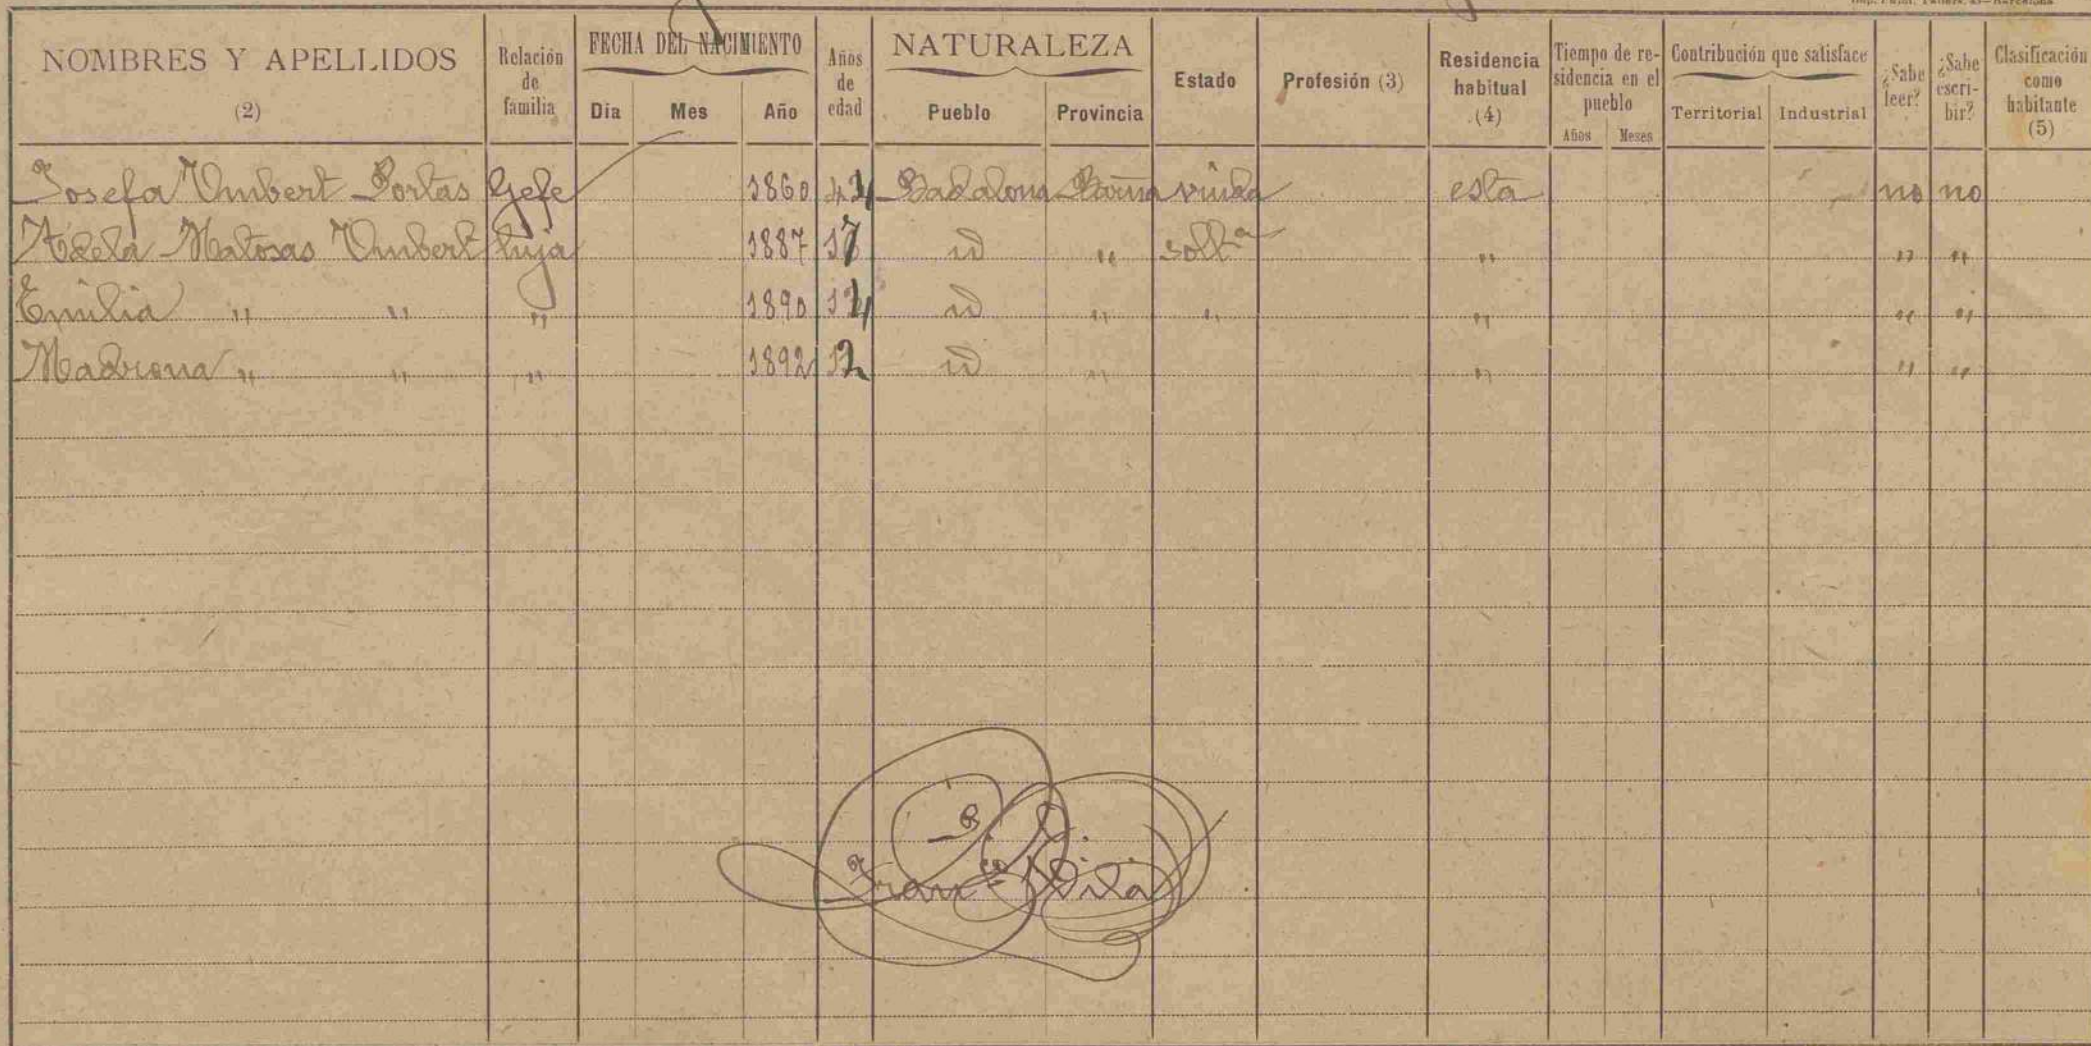 NOMBRES Y APELLIDOS (2) Relación de familia FECHA DEL NACIMIENTO Día Mes Año Años de edad NATURALEZA Pueblo Provincia Estado Profesión (3) Residencia habitual (4) Tiempo de residencia en el pueblo Años Meses Contribución que satisface Territorial Industrial ¿Sabe leer? ¿Sabe escribir? Clasificación como habitante (5)
Josefa Umbert Portas Gefe 1860 44 Badalona Barña viuda esta no no
Adela Matosas Umbert hija 1887 17 id " solt.ª " " "
Emilia " " " 1890 14 id " " " " "
Madrona " " " 1892 12 id " " " "
Fran.co Vila